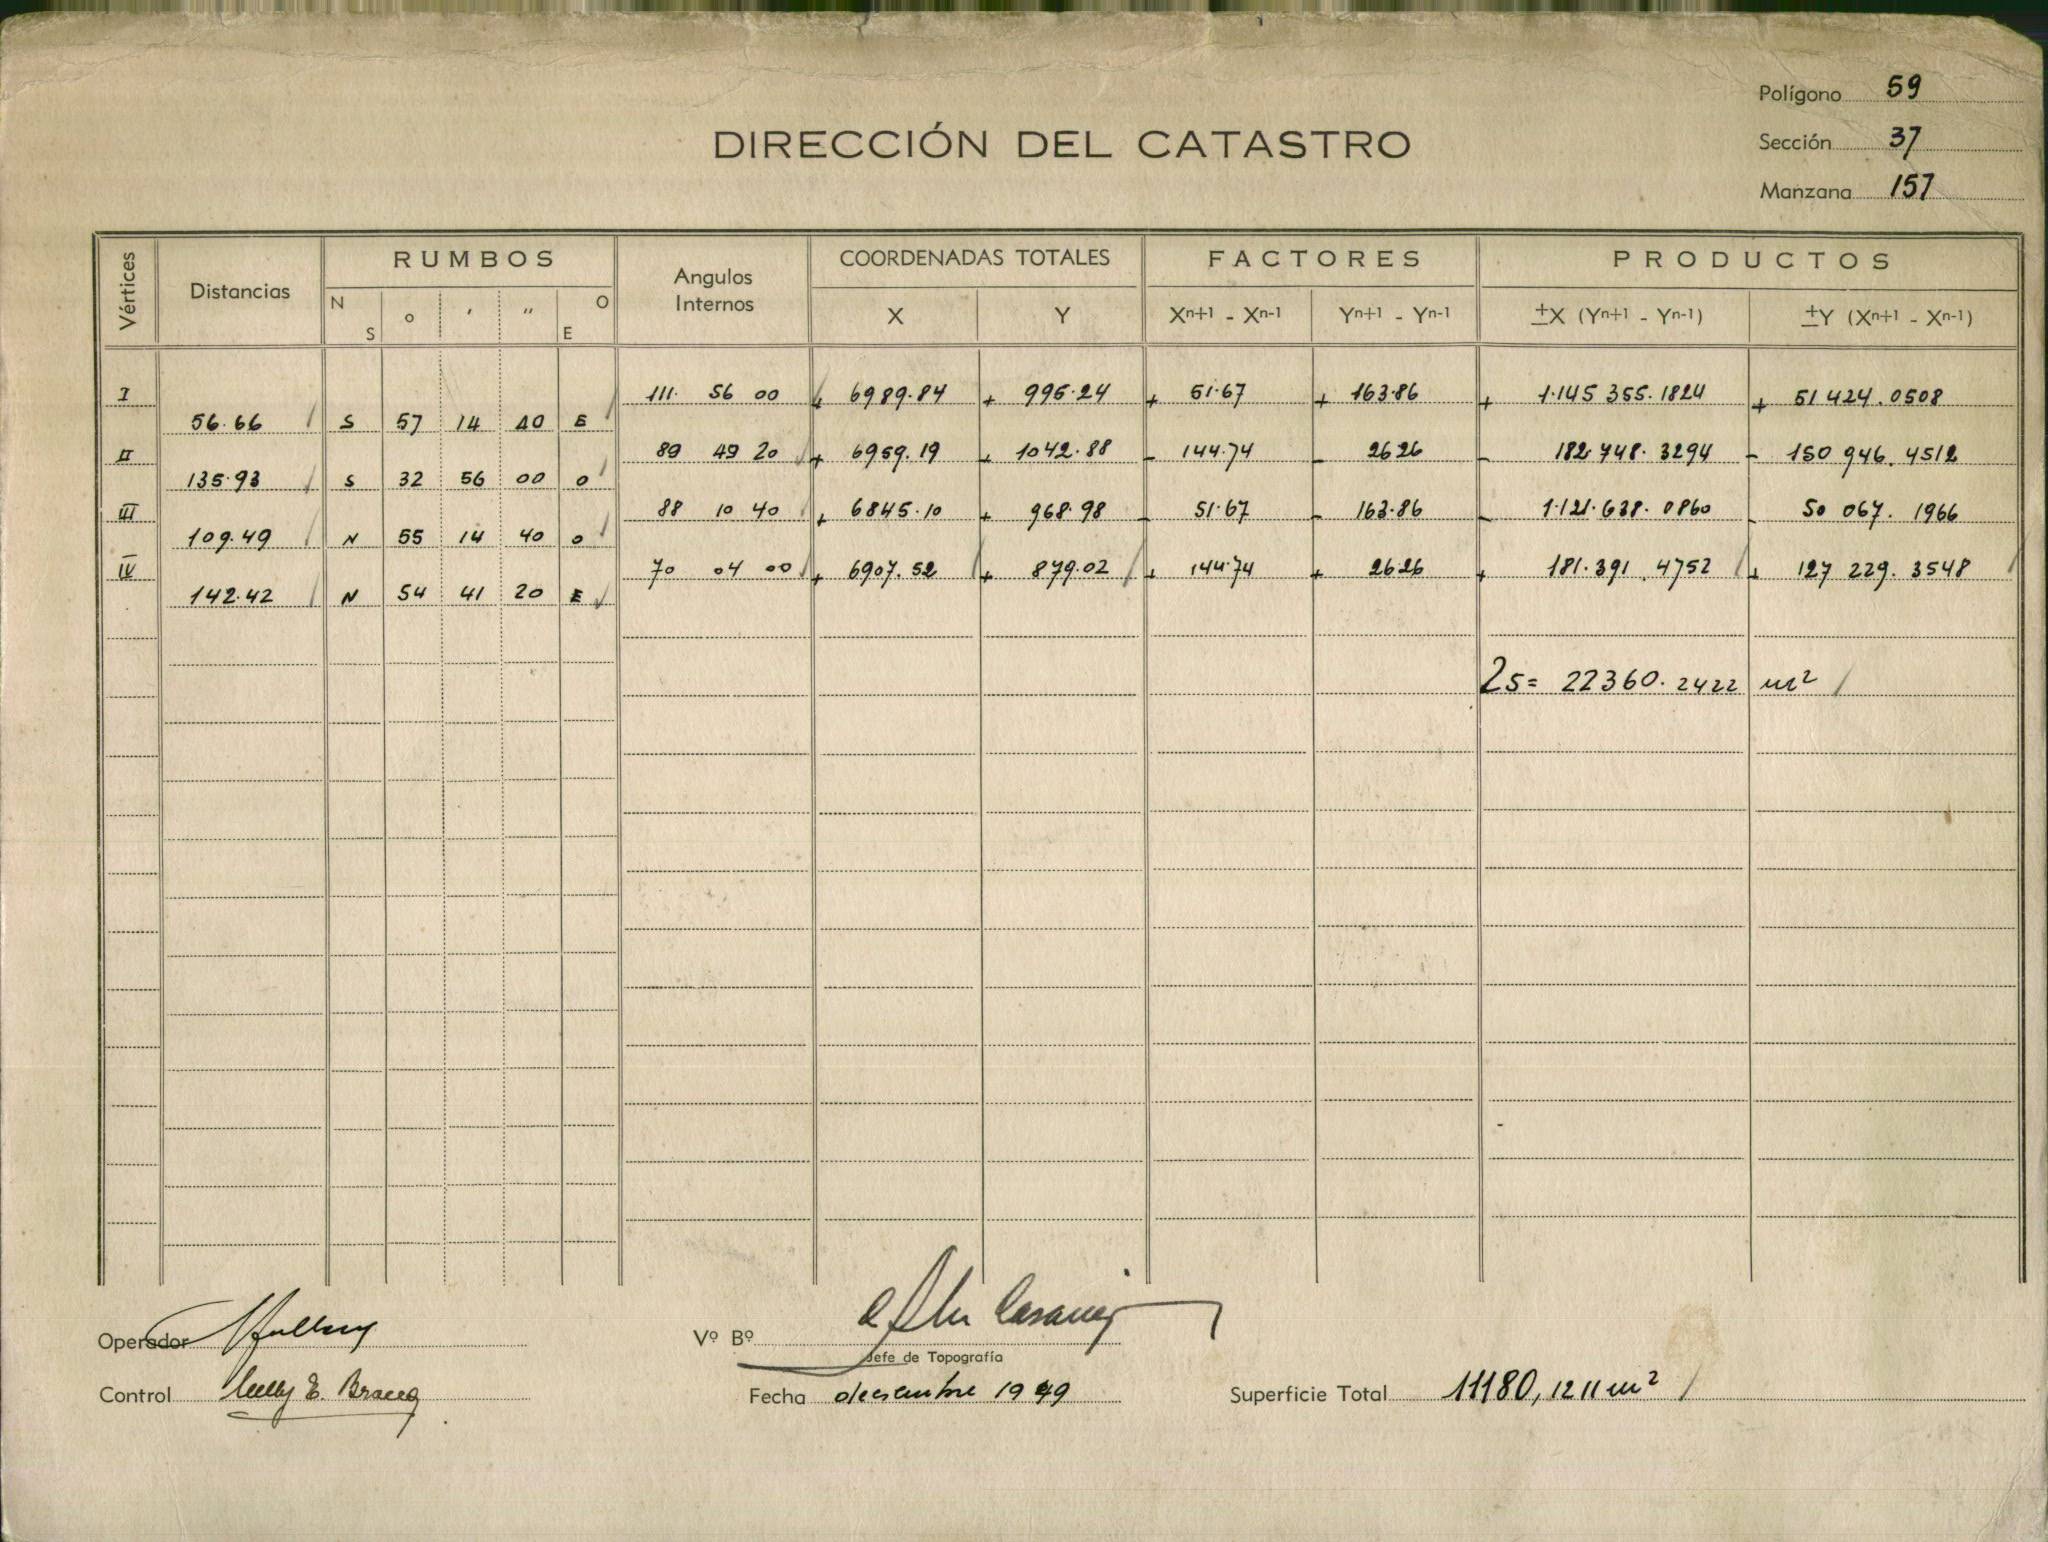 Polígono 59
DIRECCIÓN DEL CATASTRO
Sección 37
Manzana 157
Vértices Distancias RUMBOS Angulos Internos COORDENADAS TOTALES FACTORES PRODUCTOS
N S o ' " O E X Y Xn+1 - Xn-1 Yn+1 - Yn-1 ±X (Yn+1 - Yn-1) ±Y (Xn+1 - Xn-1)
I 111. 56 00 + 6989.84 + 995.24 + 51.67 + 163.86 + 1.145 355.1824 + 51 424.0508
56.66 S 57 14 40 E
II 89 49 20 + 6959.19 + 1042.88 - 144.74 - 26 26 - 182.748.3294 - 150 946.4512
135.93 S 32 56 00 O
III 88 10 40 + 6845.10 + 968.98 - 51.67 - 163.86 - 1.121.638.0860 - 50 067.1966
109.49 N 55 14 40 O
IV 70 04 00 + 6907.52 + 879.02 + 144.74 + 26 26 + 181.391.4752 + 127 229.3548
142.42 N 54 41 20 E
2s= 22360.2422 m²
Operador
Vº Bº
Jefe de Topografía
Control E.
Fecha 1949
Superficie Total 11180,1211 m²